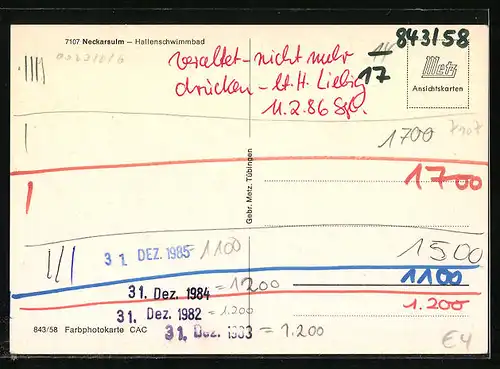 7107 Neckarsulm — Hallenschwimmbad
14 843/58
veraltet - nicht mehr 17
drücken - lt. H. Liebig
11.2.86 Sgl.
Metz
Ansichtskarten
1700 7107
1700
Gebr. Metz, Tübingen
1500
31. DEZ. 1985 - 1100
1100
31. Dez. 1984 = 1200
1.200
31. Dez. 1982 = 1.200
31. Dez. 1983 = 1.200
843/58 Farbphotokarte CAC
€4